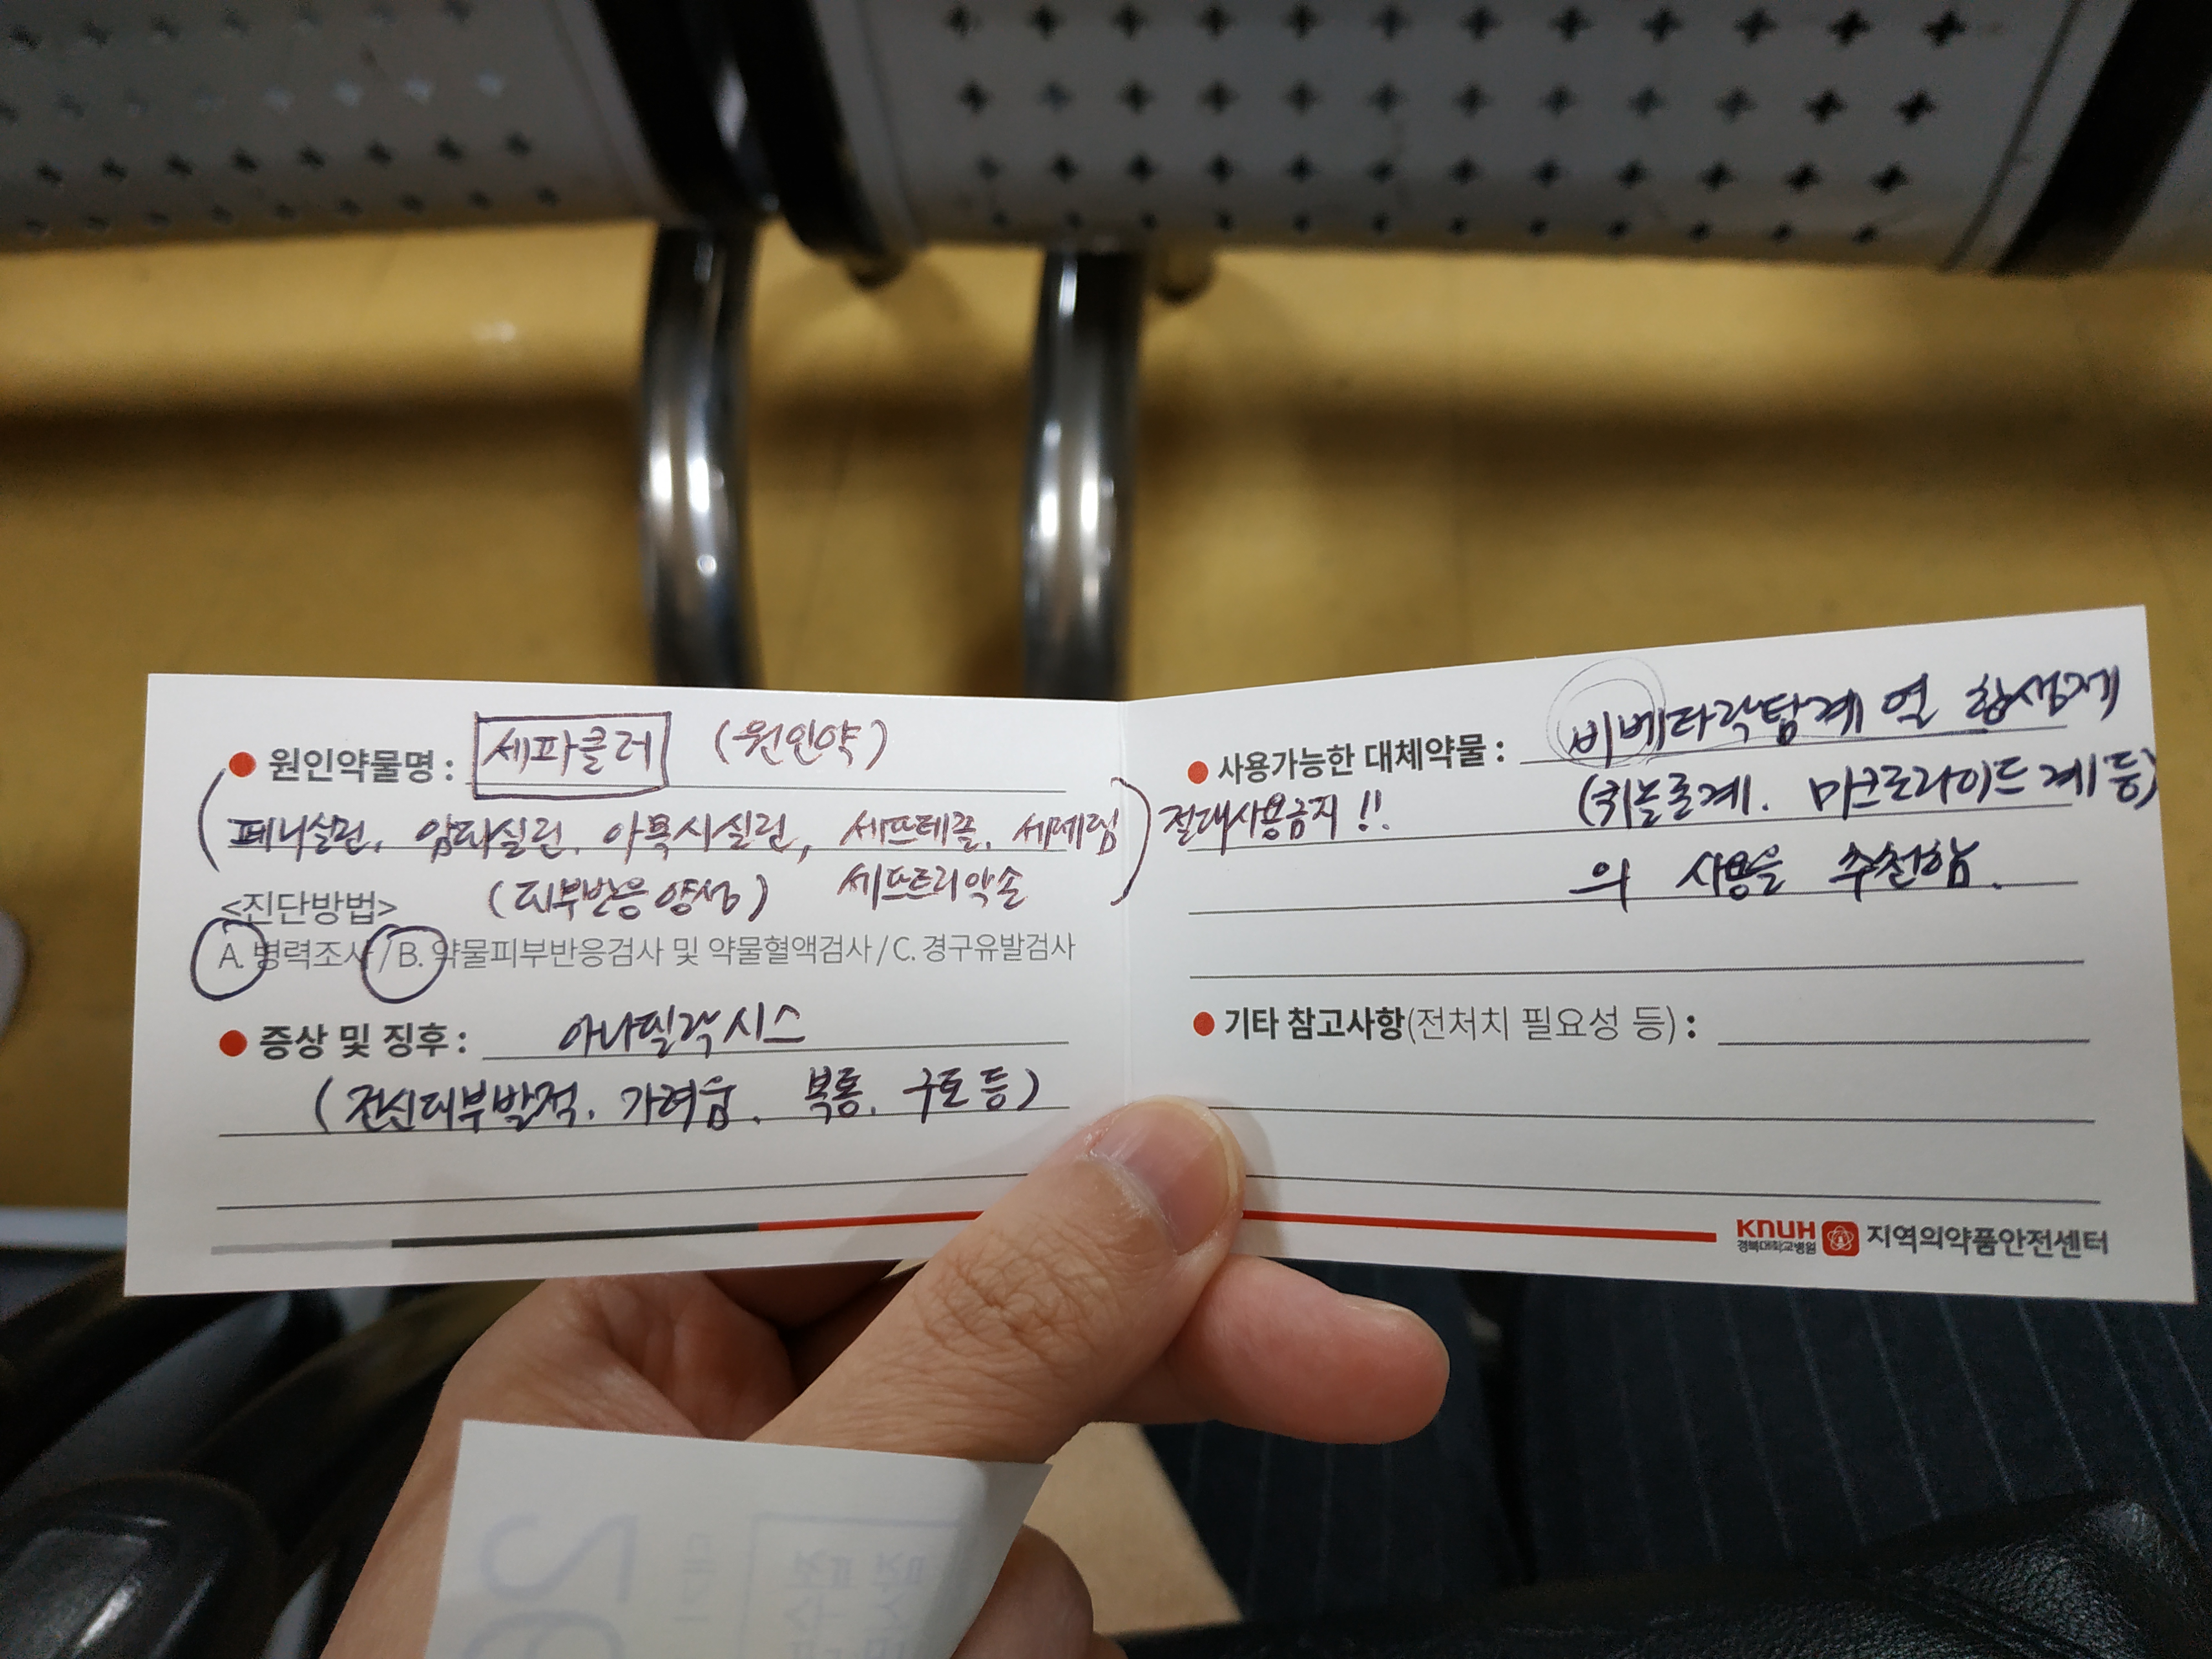 ● 원인약물명 : 세파클러 (원인약)
(페니실린, 암피실린, 아목시실린, 세프테졸, 세페림
(피부반응 양성) 세프트리악손)
<진단방법>
A. 병력조사 / B. 약물피부반응검사 및 약물혈액검사 / C. 경구유발검사
● 증상 및 징후 : 아나필락시스
(전신피부발적, 가려움, 복통, 구토 등)
● 사용가능한 대체약물 : 비베타락탐계 열 항생제
절대사용금지!! (퀴놀론계, 마크로라이드계 등)
의 사용을 추천함.
● 기타 참고사항(전처치 필요성 등) :
KNUH
경북대학교병원
지역의약품안전센터